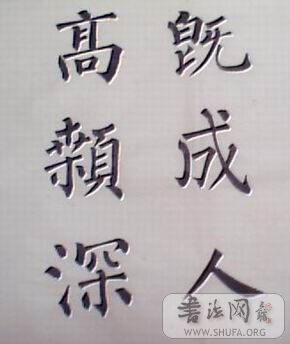 既成人
高顙深
书法网
WWW.SHUFA.ORG